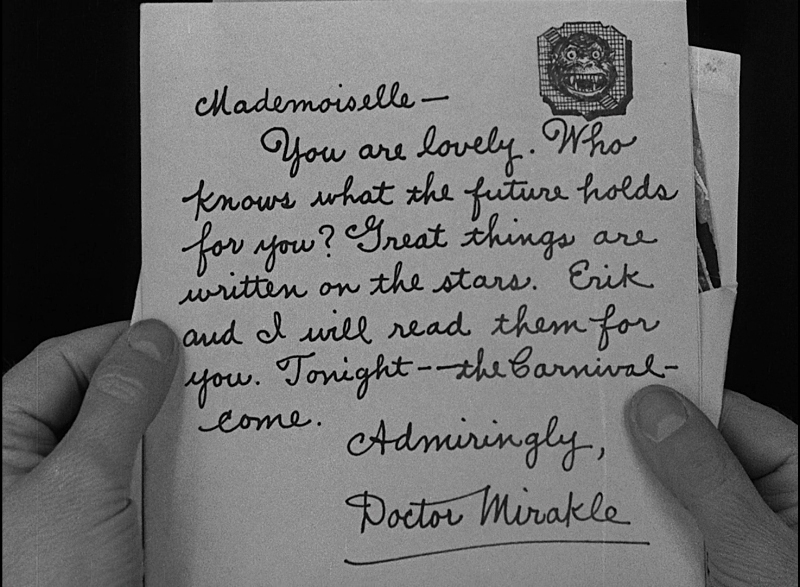 Mademoiselle—
You are lovely. Who
knows what the future holds
for you? Great things are
written on the stars. Erik
and I will read them for
you. Tonight--the Carnival-
come.
Admiringly,
Doctor Mirakle